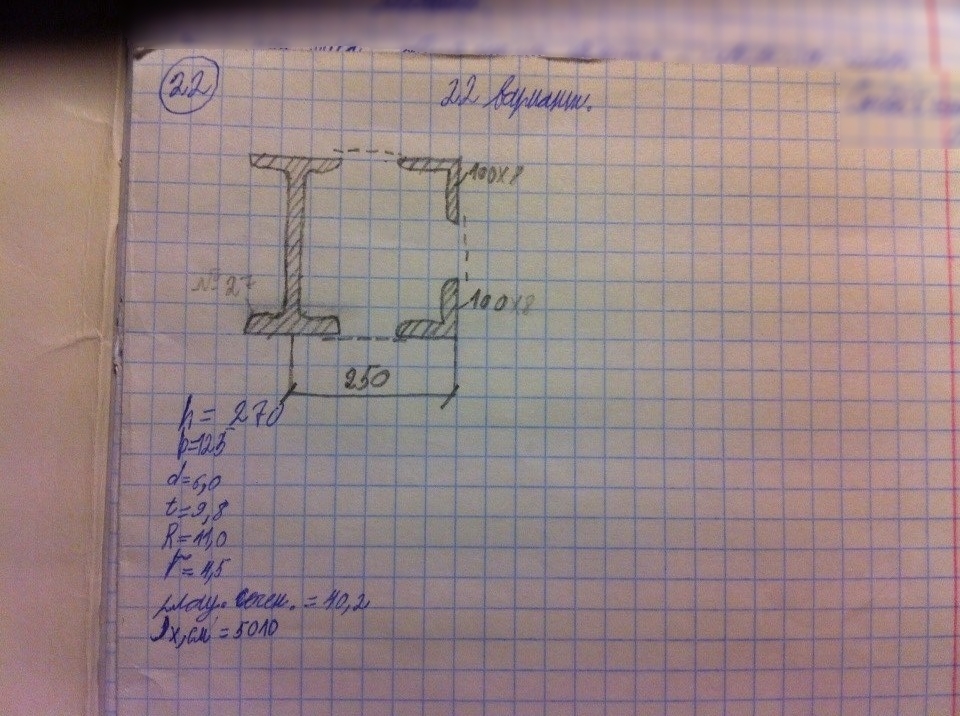 22
22 вариант.
100х8
№27
100х8
250
h = 270
b=125
d=6,0
t=9,8
R=11,0
r=4,5
= 40,2
Jx,см = 5010